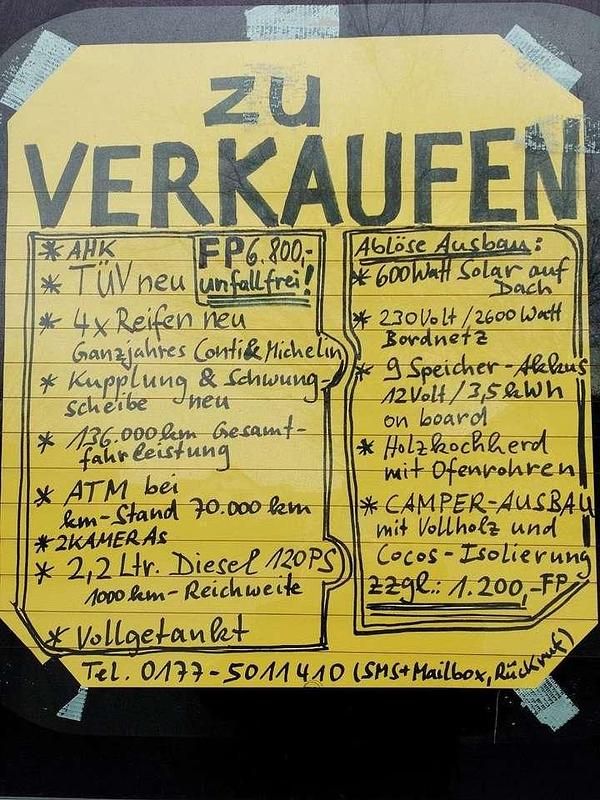 zu
VERKAUFEN
* AHK
FP 6.800,-
unfallfrei!
* TÜV neu
* 4x Reifen neu
Ganzjahres Conti & Michelin
* Kupplung & Schwung-
scheibe neu
* 136.000 km Gesamt-
fahrleistung
* ATM bei
km-Stand 70.000 km
* 2 KAMERAs
* 2,2 Ltr. Diesel 120 PS
1000 km - Reichweite
* Vollgetankt
Ablöse Ausbau:
* 600 Watt Solar auf
Dach
* 230 Volt / 2600 Watt
Bordnetz
* 9 Speicher - Akkus
12 Volt / 3,5 kWh
on board
* Holzkochherd
mit Ofenrohren
* CAMPER-AUSBAU
mit Vollholz und
Cocos - Isolierung
zzgl.: 1.200,- FP
Tel. 0177 - 5011410 (SMS + Mailbox, Rückruf)